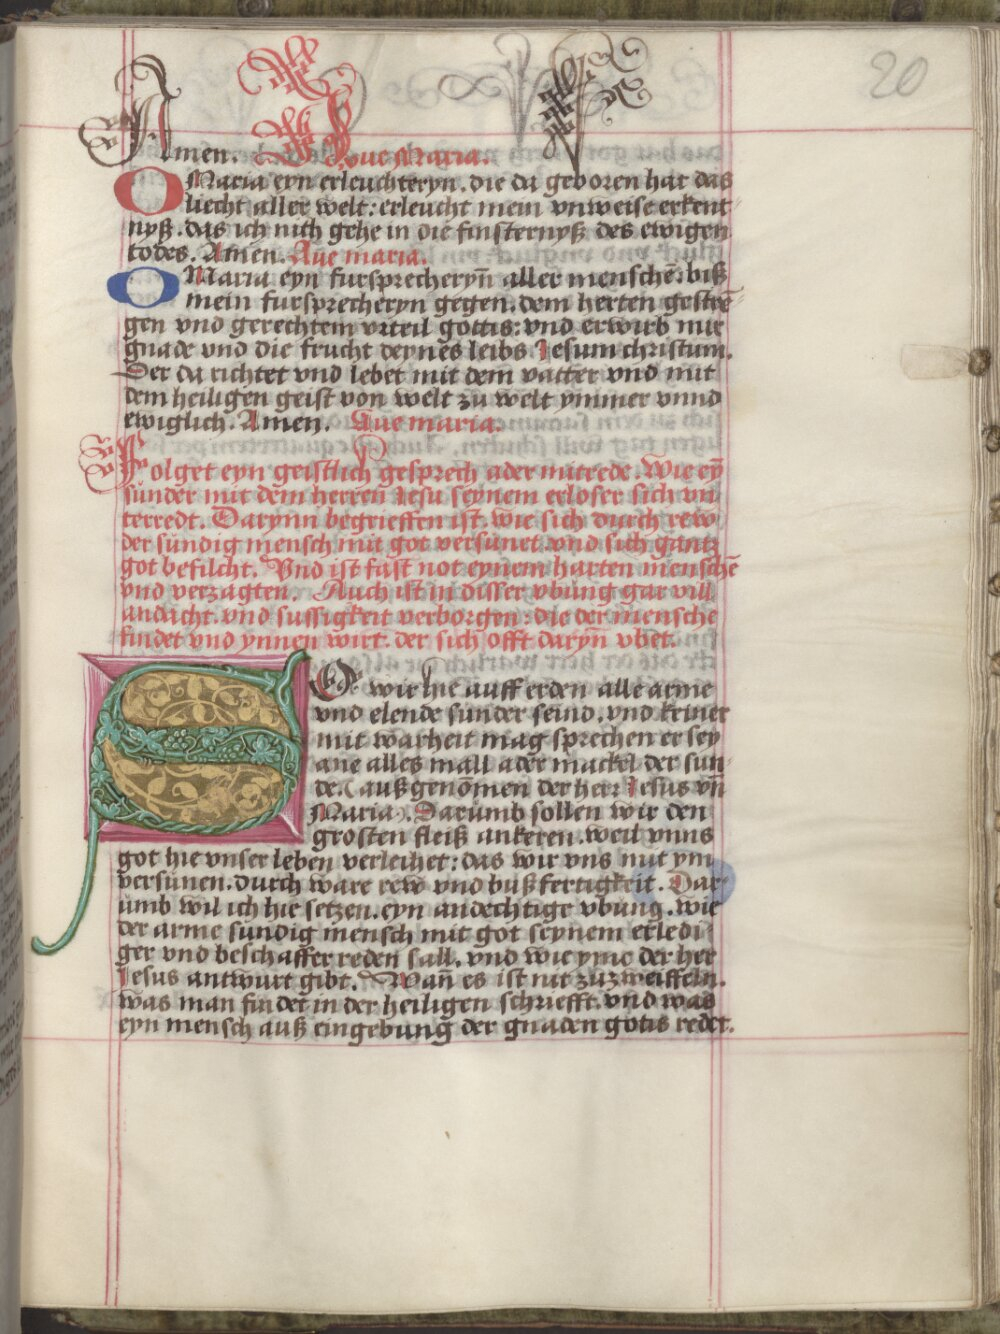 20
Amen. Aue Maria.
O Maria eyn erleuchteryn. die da geboren hat das
liecht aller welt: erleucht mein vnweise erkent
nyß. das ich nich gehe in die finsternyß des ewigen
todes. Amen. Aue maria.
O Maria eyn fursprecheryn̄ aller menschē. biß
mein fursprecheryn gegen. dem herten gestrē
gen vnd gerechtem vrteil gottis: vnd erwirb mir
gnade vnd die frucht deynes leibs Jesum christum.
Der da richtet vnd lebet mit dem vatter vnd mit
dem heiligen geist von welt zu welt ymmer vnnd
ewiglich. Amen. Aue maria.
Folget eyn geistlich gesprech ader mitrede. Wie eȳ
sunder mit dem herren Jesu seynem erloser sich vn
terredt. Darynn begrieffen ist. wie sich durch rew
der sundig mensch mit got versunet. vnd sich gantz
got befilcht. Vnd ist fast not eynem harten menschē
vnd verzagten. Auch ist in disser vbung gar vill
andacht. vnd sussigkeit verborgen: die der mensche
findet vnd ynnen wirt. der sich offt daryn̄ vbet.
SO wir hie auff erden alle arme
vnd elende sunder seind. vnd keiner
mit warheit mag sprechen er sey
ane alles mall ader mackel der sun
de. (außgenōmen der herr Jesus vn̄
Maria). Darumb sollen wir den
grosten fleiß ankeren. weil vnns
got hie vnser leben verleihet: das wir vns mit ym
versunen. durch ware rew vnd bußfertigkeit. Dar
umb wil ich hie setzen. eyn andechtige vbung. wie
der arme sundig mensch mit got seynem erledi
ger vnd beschaffer reden sall. vnd wie yme der her
Jesus antwurt gibt. Wan̄ es ist nit zuzweiffeln.
was man findet in der heiligen schriefft. vnd was
eyn mensch auß eingebung der gnaden gotis redet.